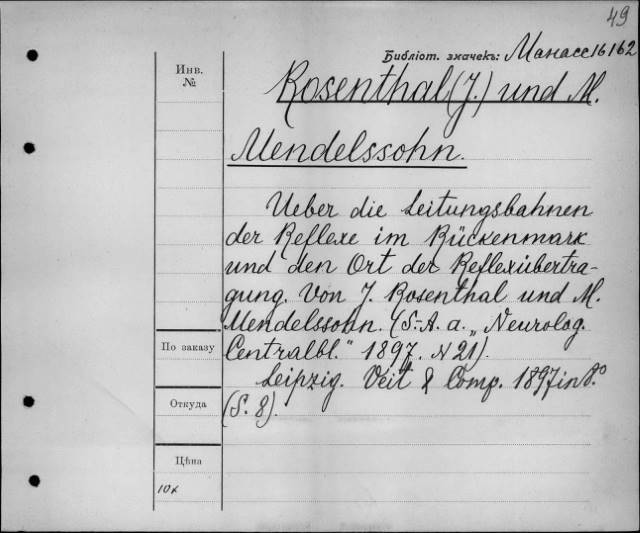 49
Библіот. значекъ: Манассе 16162
Инв.
№
Rosenthal (J.) und M.
Mendelssohn.
Ueber die Leitungsbahnen
der Reflexe im Rückenmark
und den Ort der Reflexübertra-
gung. Von J. Rosenthal und M.
Mendelssohn. (S.-A. a. „Neurolog.
Centralbl." 1897. N 21).
Leipzig. Veit & Comp. 1897 in 8.°
(S. 8).
По заказу
Откуда
Цѣна
10к